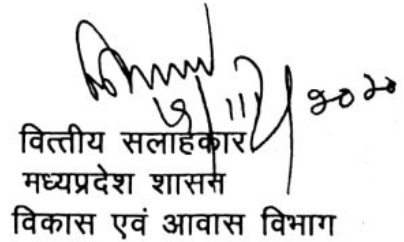 वित्तीय सलाहकार
मध्यप्रदेश शासन
विकास एवं आवास विभाग